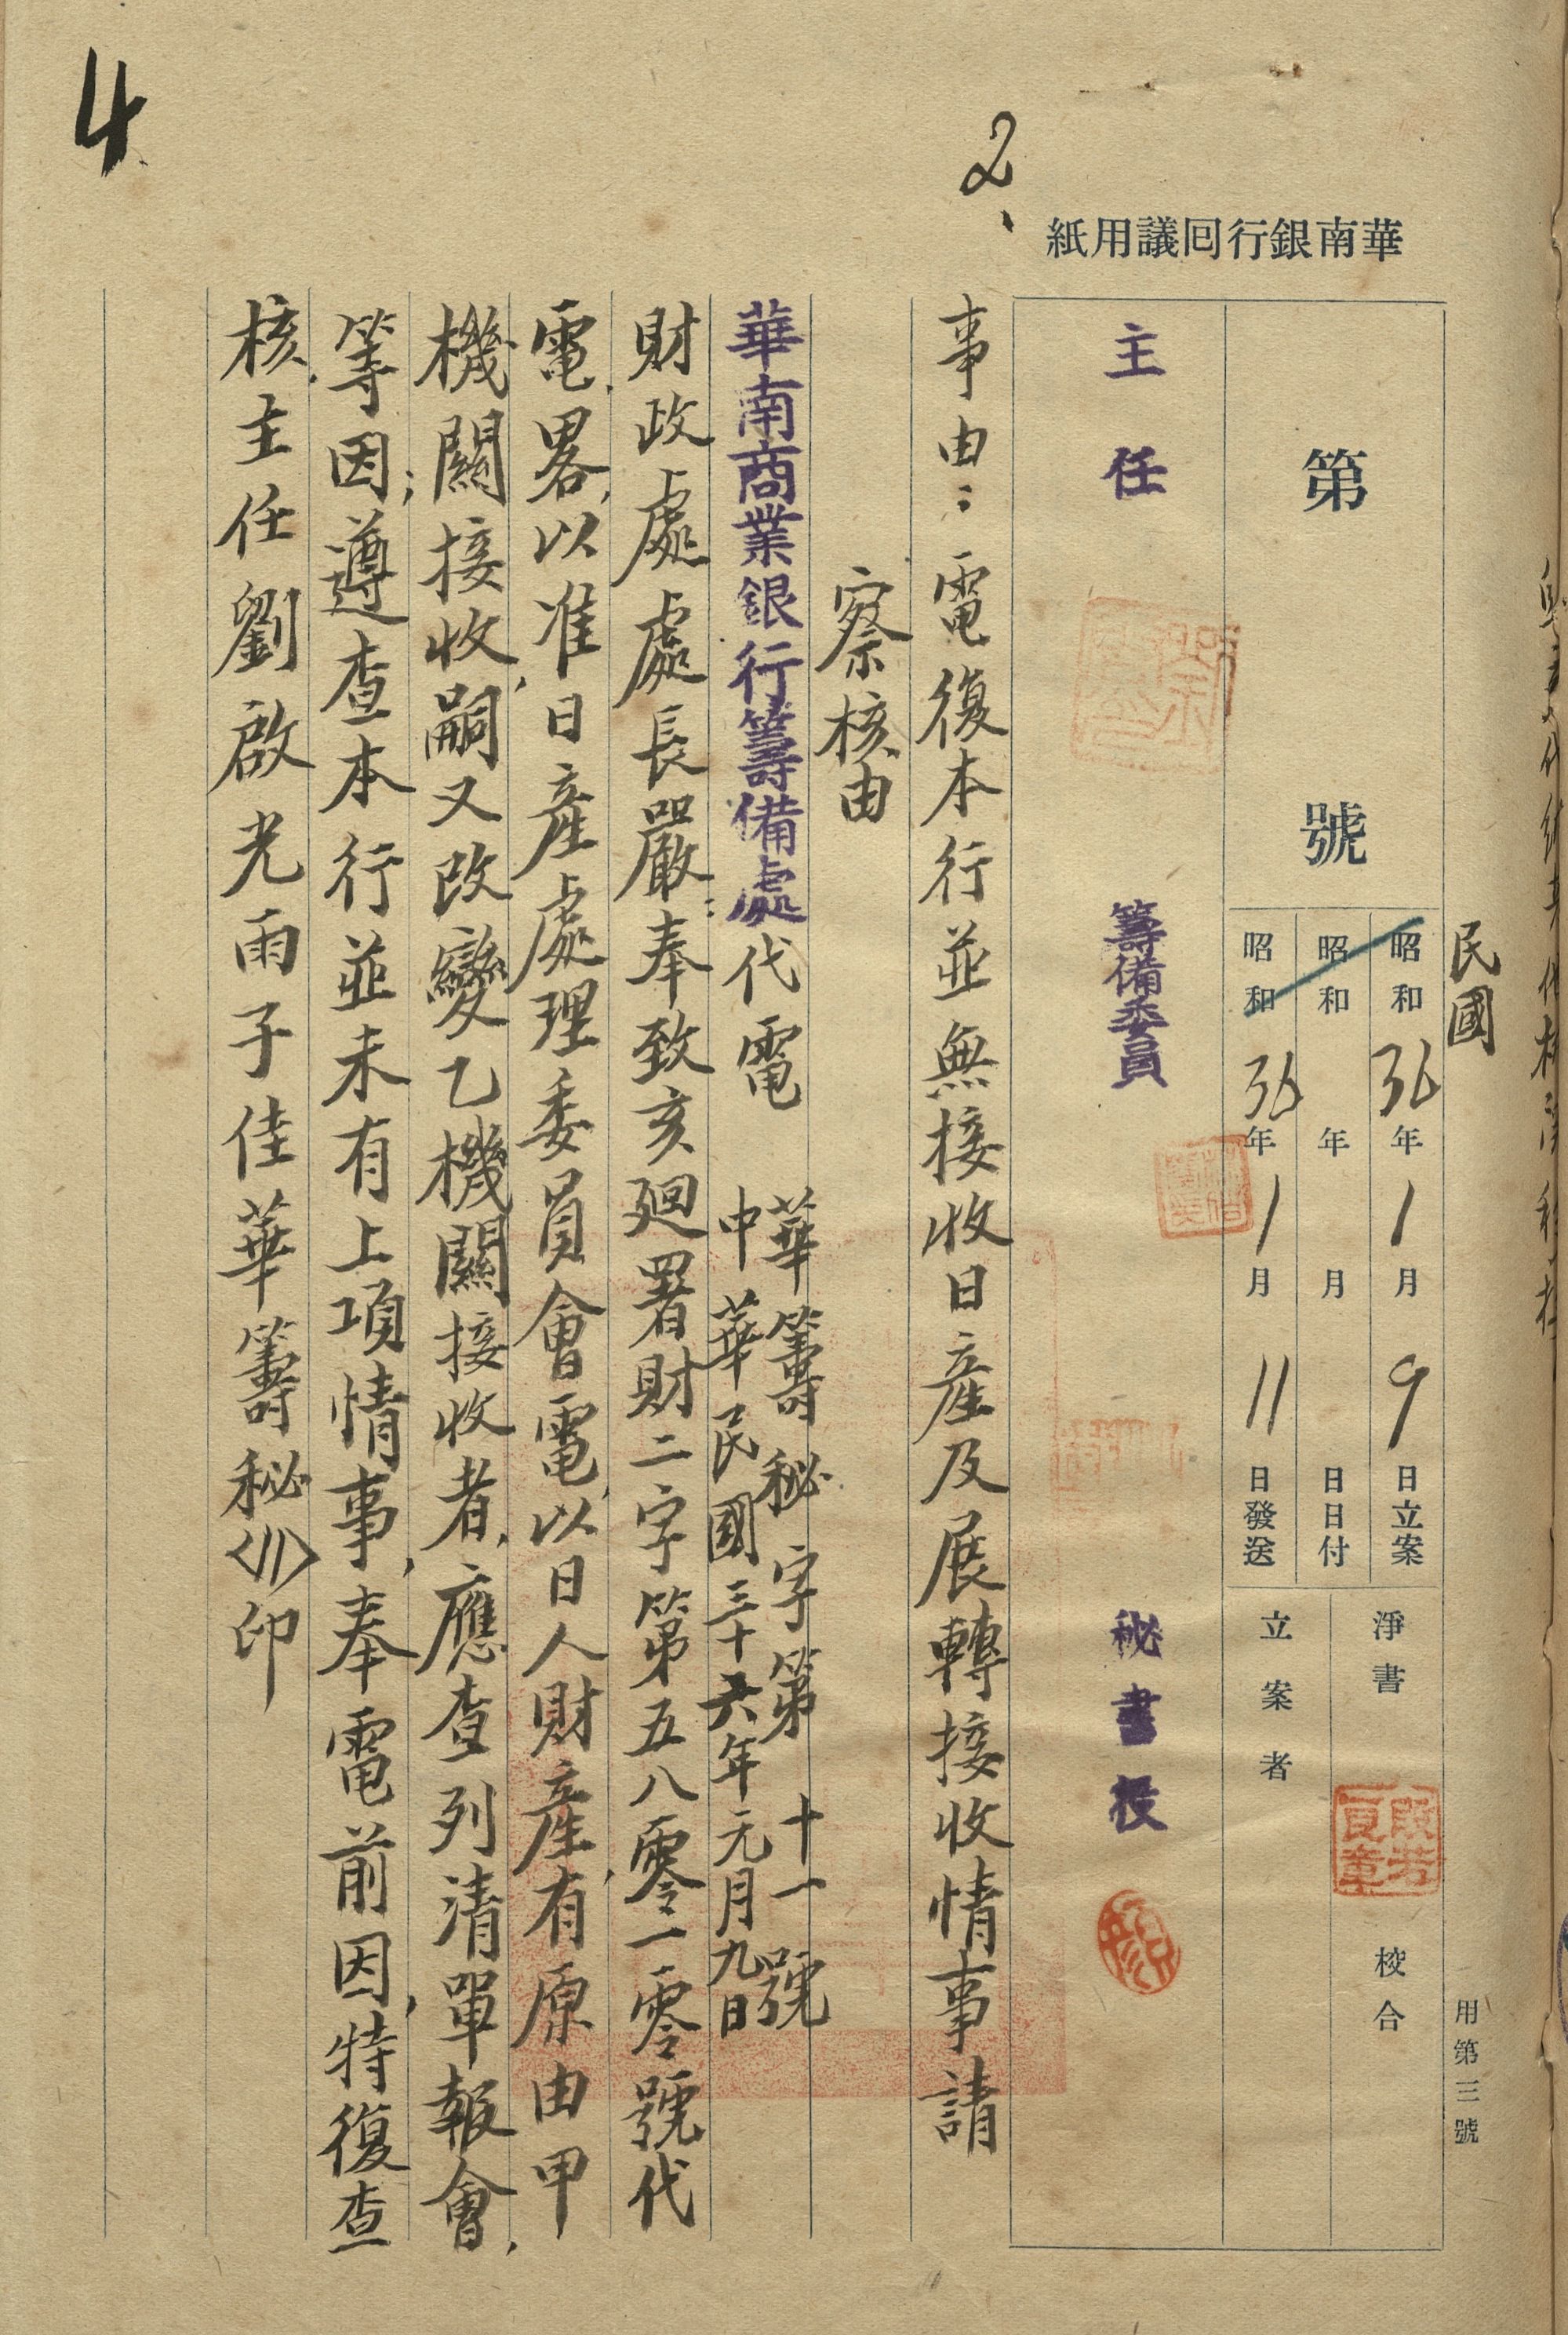 4
2、
紙用議囘行銀南華
民國
用第三號
第 號
昭和36年1月9日立案
昭和 年 月 日日付
昭和36年1月11日發送
淨書 校合
立案者
主任 籌備委員 秘書役
事由：電復本行並無接收日產及展轉接收情事請
察核由
華南商業銀行籌備處代電
華籌秘字第十一號
中華民國三十六年元月九日
財政處處長嚴：奉致亥廻署財二字第五八零一零號代
電，畧，以准日產處理委員會電，以日人財產，有原由甲
機關接收，嗣又改變乙機關接收者，應查列清單報會，
等因；遵查本行並未有上項情事，奉電前因，特復查
核，主任劉啟光雨子佳華籌秘〈11〉印